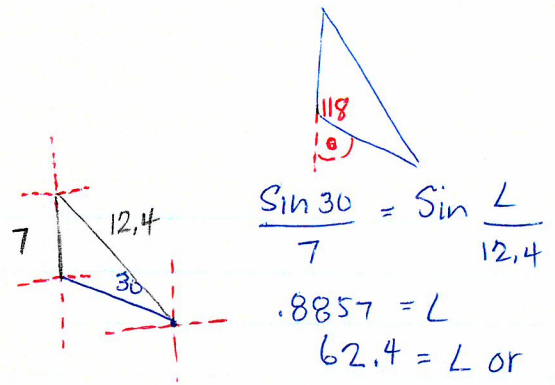 118
θ
7
12,4
30
Sin 30 / 7 = Sin L / 12,4
.8857 = L
62.4 = L or